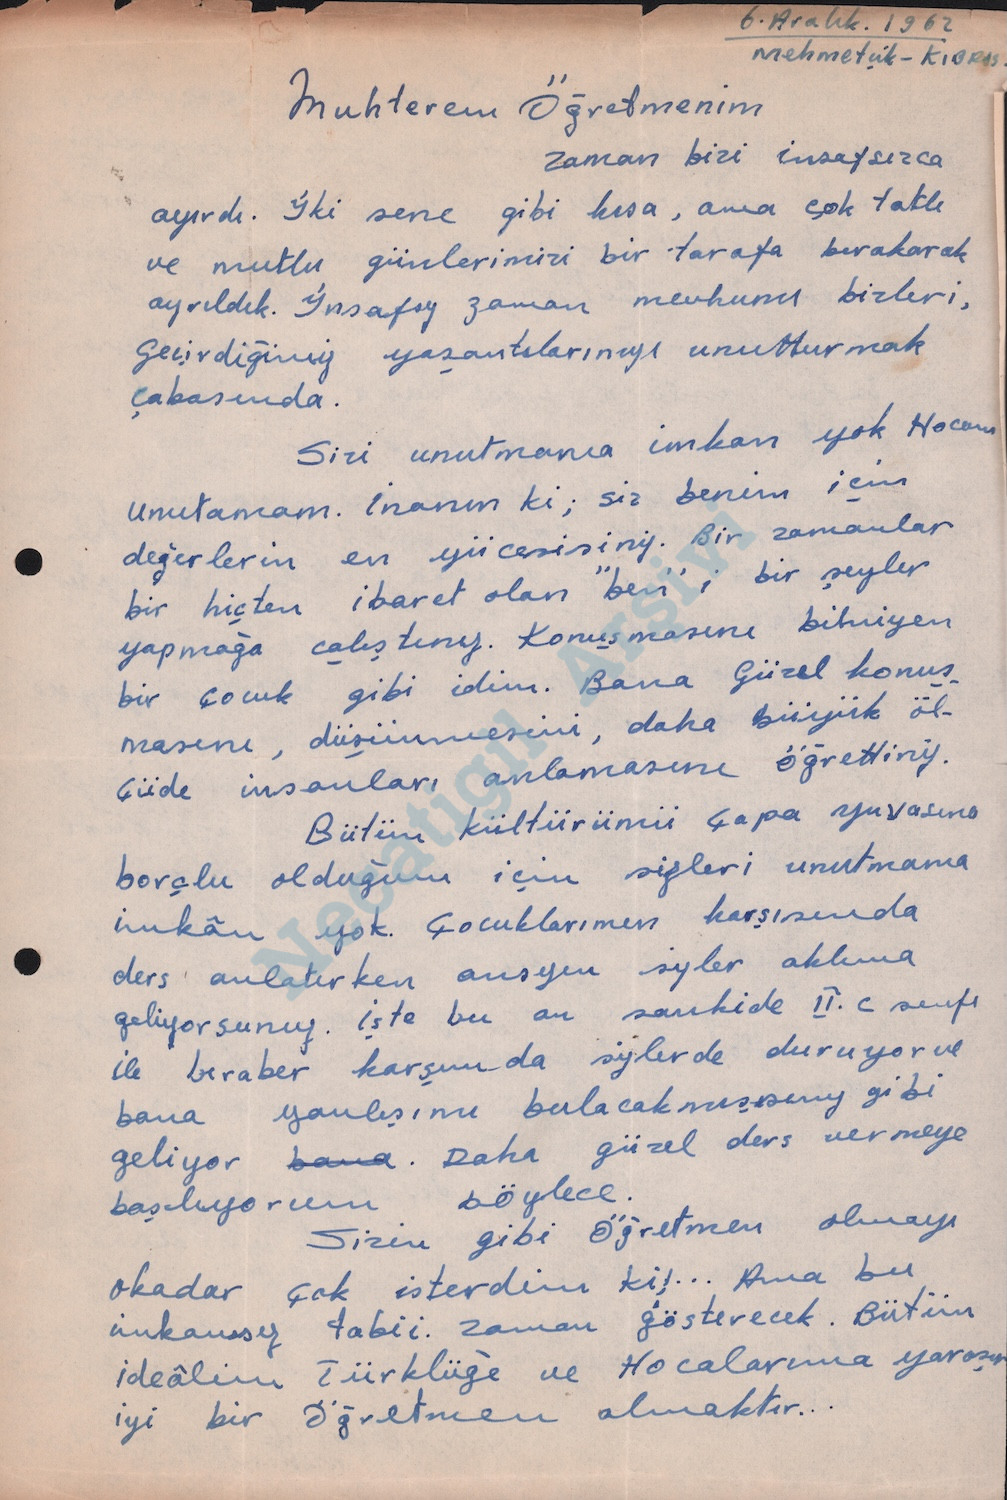 6. Aralık. 1962
Mehmetçik - KIBRIS.
Muhterem Öğretmenim
zaman bizi insafsızca
ayırdı. İki sene gibi kısa, ama çok tatlı
ve mutlu günlerimizi bir tarafa bırakarak
ayrıldık. İnsafsız zaman mevhumu bizleri,
Geçirdiğimiz yaşantılarımızı unutturmak
çabasında.
Sizi unutmama imkan yok Hocam
Unutamam. İnanın ki; siz benim için
değerlerin en yücesisiniz. Bir zamanlar
bir hiçten ibaret olan "ben" i bir şeyler
yapmağa çalıştınız. Konuşmasını bilmiyen
bir çocuk gibi idim. Bana Güzel konuş-
masını, düşünmesini, daha büyük öl-
çüde insanları anlamasını öğrettiniz.
Bütün kültürümü Çapa yuvasına
borçlu olduğum için sizleri unutmama
imkân yok. Çocuklarımın karşısında
ders anlatırken ansızın sizler aklıma
geliyorsunuz. İşte bu an sankide II. c sınıfı
ile beraber karşımda sizlerde duruyor ve
bana yanlışımı bulacakmışsınız gibi
geliyor bana. Daha güzel ders vermeye
başlıyorum böylece.
Sizin gibi Öğretmen olmayı
okadar çok isterdim ki!... Ama bu
imkansız tabii. Zaman gösterecek. Bütün
ideâlim Türklüğe ve Hocalarıma yaraşır
iyi bir Öğretmen olmaktır...
Necatigil Arşivi